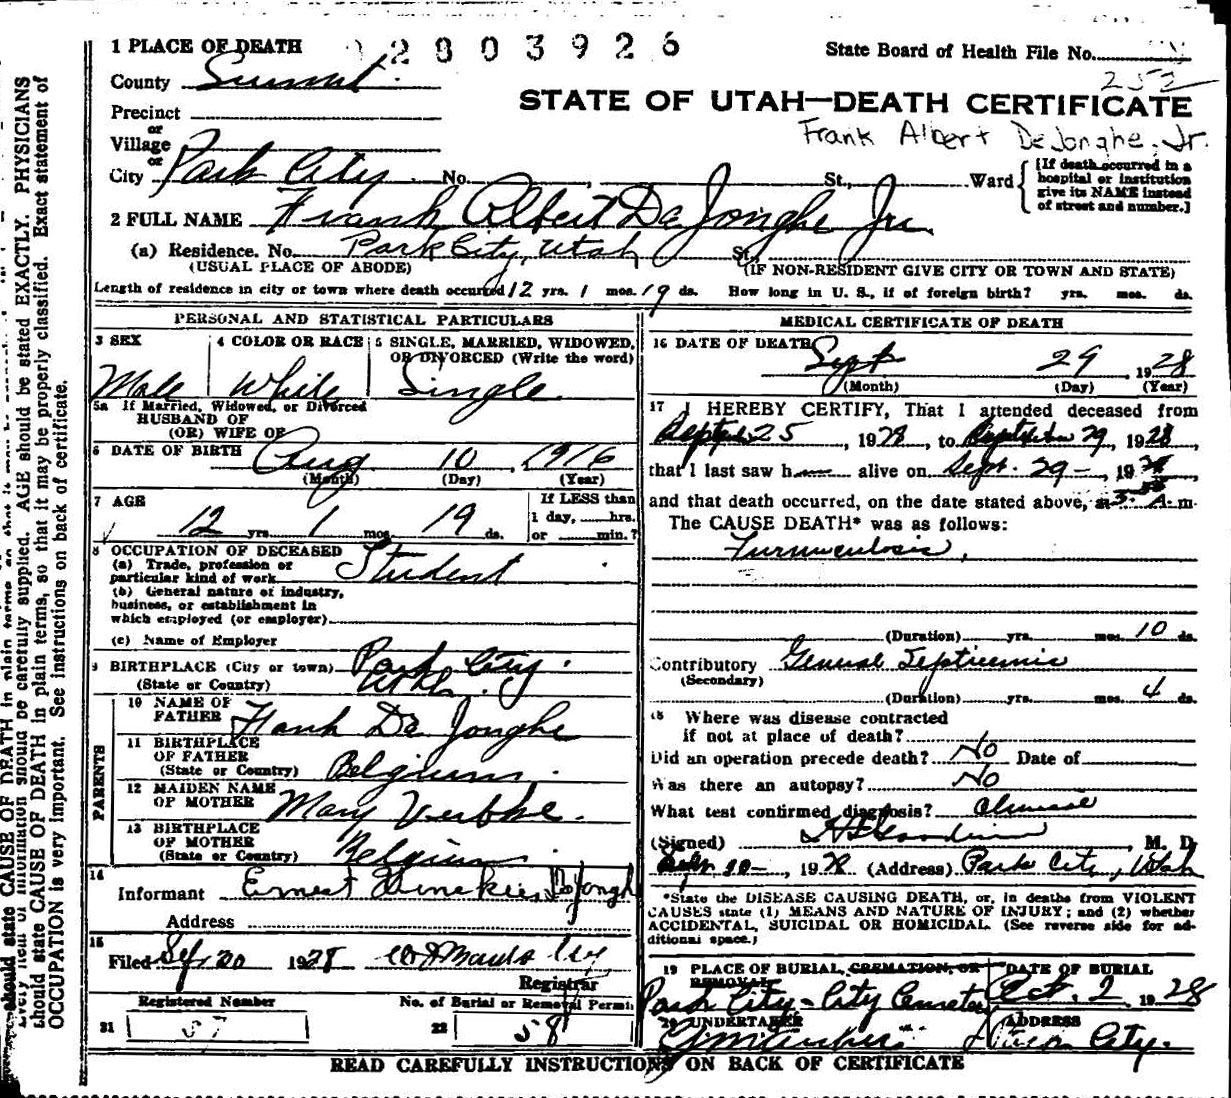 1 PLACE OF DEATH 2803926 State Board of Health File No.
County Summit 252
STATE OF UTAH—DEATH CERTIFICATE
Precinct
or
Frank Albert DeJonghe, Jr.
Village
or
City Park City No. , St., Ward
[If death occurred in a
hospital or institution
give its NAME instead
of street and number.]
2 FULL NAME Frank Albert De Jonghe Jr.
(a) Residence. No. Park City, Utah St.,
(USUAL PLACE OF ABODE) (IF NON-RESIDENT GIVE CITY OR TOWN AND STATE)
Length of residence in city or town where death occurred 12 yrs. 1 mos. 19 ds. How long in U. S., if of foreign birth? yrs. mos. ds.
PERSONAL AND STATISTICAL PARTICULARS
3 SEX 4 COLOR OR RACE 5 SINGLE, MARRIED, WIDOWED,
OR DIVORCED (Write the word)
Male White Single
5a If Married, Widowed, or Divorced
HUSBAND OF
(OR) WIFE OF
6 DATE OF BIRTH Aug 10, 1916
(Month) (Day) (Year)
7 AGE If LESS than
1 day, hrs.
12 yrs. 1 mos. 19 ds. or min.?
8 OCCUPATION OF DECEASED
(a) Trade, profession or
particular kind of work Student
(b) General nature of industry,
business, or establishment in
which employed (or employer)
(c) Name of Employer
9 BIRTHPLACE (City or town) Park City
(State or Country) Utah
PARENTS
10 NAME OF
FATHER Frank De Jonghe
11 BIRTHPLACE
OF FATHER
(State or Country) Belgium
12 MAIDEN NAME
OF MOTHER Mary
13 BIRTHPLACE
OF MOTHER
(State or Country) Belgium
14
Informant Ernest DeJongh
Address
15
Filed 1928
Registrar
Registered Number No. of Burial or Removal Permit
21 57 22 58
MEDICAL CERTIFICATE OF DEATH
16 DATE OF DEATH Sept 29 1928
(Month) (Day) (Year)
17 I HEREBY CERTIFY, That I attended deceased from
Sept 25, 1928, to September 29, 1928,
that I last saw h alive on Sept. 29, 1928
and that death occurred, on the date stated above, at A m.
The CAUSE DEATH* was as follows:
Furunculosis,
(Duration) yrs. mos. 10 ds.
Contributory General Septicemia
(Secondary)
(Duration) yrs. mos. 4 ds.
18 Where was disease contracted
if not at place of death?
Did an operation precede death? No Date of
Was there an autopsy? No
What test confirmed diagnosis? Clinical
(Signed) , M. D.
1928 (Address) Park City, Utah
*State the DISEASE CAUSING DEATH, or, in deaths from VIOLENT
CAUSES state (1) MEANS AND NATURE OF INJURY; and (2) whether
ACCIDENTAL, SUICIDAL OR HOMICIDAL. (See reverse side for ad-
ditional space.)
19 PLACE OF BURIAL, CREMATION, OR REMOVAL DATE OF BURIAL
Park City - City Cemetery Oct. 2, 1928
20 UNDERTAKER ADDRESS
City.
READ CAREFULLY INSTRUCTIONS ON BACK OF CERTIFICATE
should be carefully supplied. AGE should be stated EXACTLY. PHYSICIANS
should state CAUSE OF DEATH in plain terms, so that it may be properly classified. Exact statement of
OCCUPATION is very important. See instructions on back of certificate.